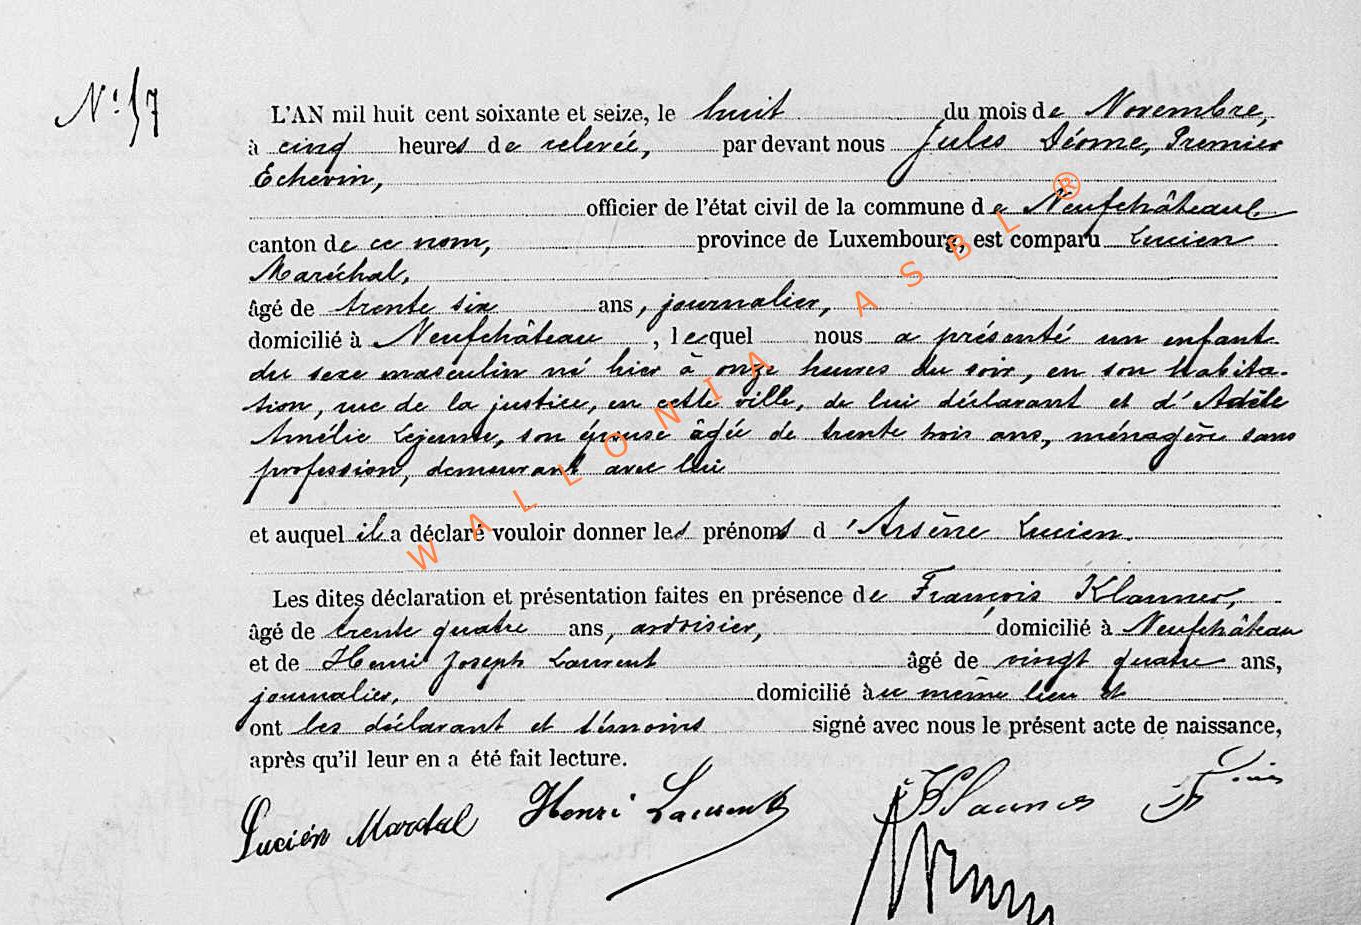 Nº 57
L'AN mil huit cent soixante et seize, le huit du mois de Novembre,
à cinq heures de relevée, par devant nous Jules Déome, Premier
Echevin,
officier de l'état civil de la commune de Neufchâteau
canton de ce nom, province de Luxembourg, est comparu Lucien
Maréchal,
âgé de trente six ans, journalier,
domicilié à Neufchâteau, lequel nous a présenté un enfant
du sexe masculin né hier à onze heures du soir, en son habita-
tion, rue de la justice, en cette ville, de lui déclarant et d'Adèle
Amélie Lejeune, son épouse âgée de trente trois ans, ménagère sans
profession, demeurant avec lui
et auquel il a déclaré vouloir donner les prénoms d'Arsène Lucien.
Les dites déclaration et présentation faites en présence de François Klauner,
âgé de trente quatre ans, ardoisier, domicilié à Neufchâteau
et de Henri Joseph Laurent âgé de vingt quatre ans,
journalier, domicilié au même lieu et
ont les déclarant et témoins signé avec nous le présent acte de naissance,
après qu'il leur en a été fait lecture.
Lucien Henri Laurent Klauner
WALLONIA ASBL ®